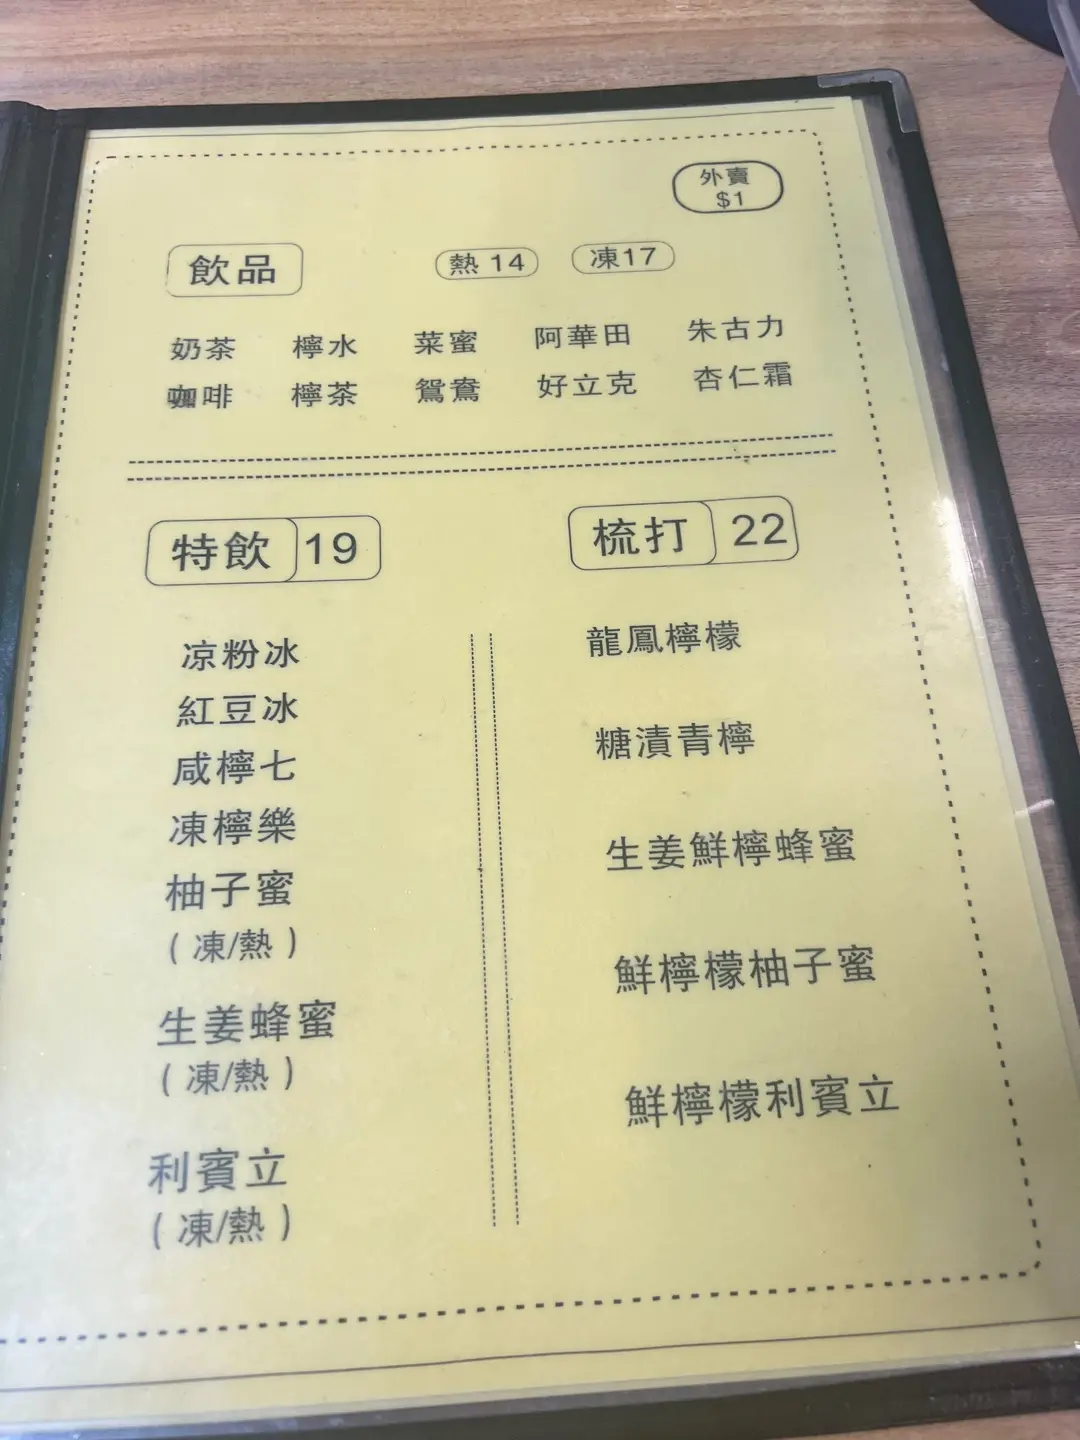 外賣
$1
飲品 熱 14 凍17
奶茶 檸水 菜蜜 阿華田 朱古力
咖啡 檸茶 鴛鴦 好立克 杏仁霜
特飲 19
涼粉冰
紅豆冰
咸檸七
凍檸樂
柚子蜜
(凍/熱)
生姜蜂蜜
(凍/熱)
利賓立
(凍/熱)
梳打 22
龍鳳檸檬
糖漬青檸
生姜鮮檸蜂蜜
鮮檸檬柚子蜜
鮮檸檬利賓立